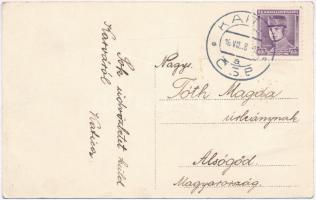 Sok üdvözletet küld
Karváról
Katica
16.VIII.
ČSR
Nagys.
Tóth Magda
úrleánynak
Alsógöd
Magyarország.